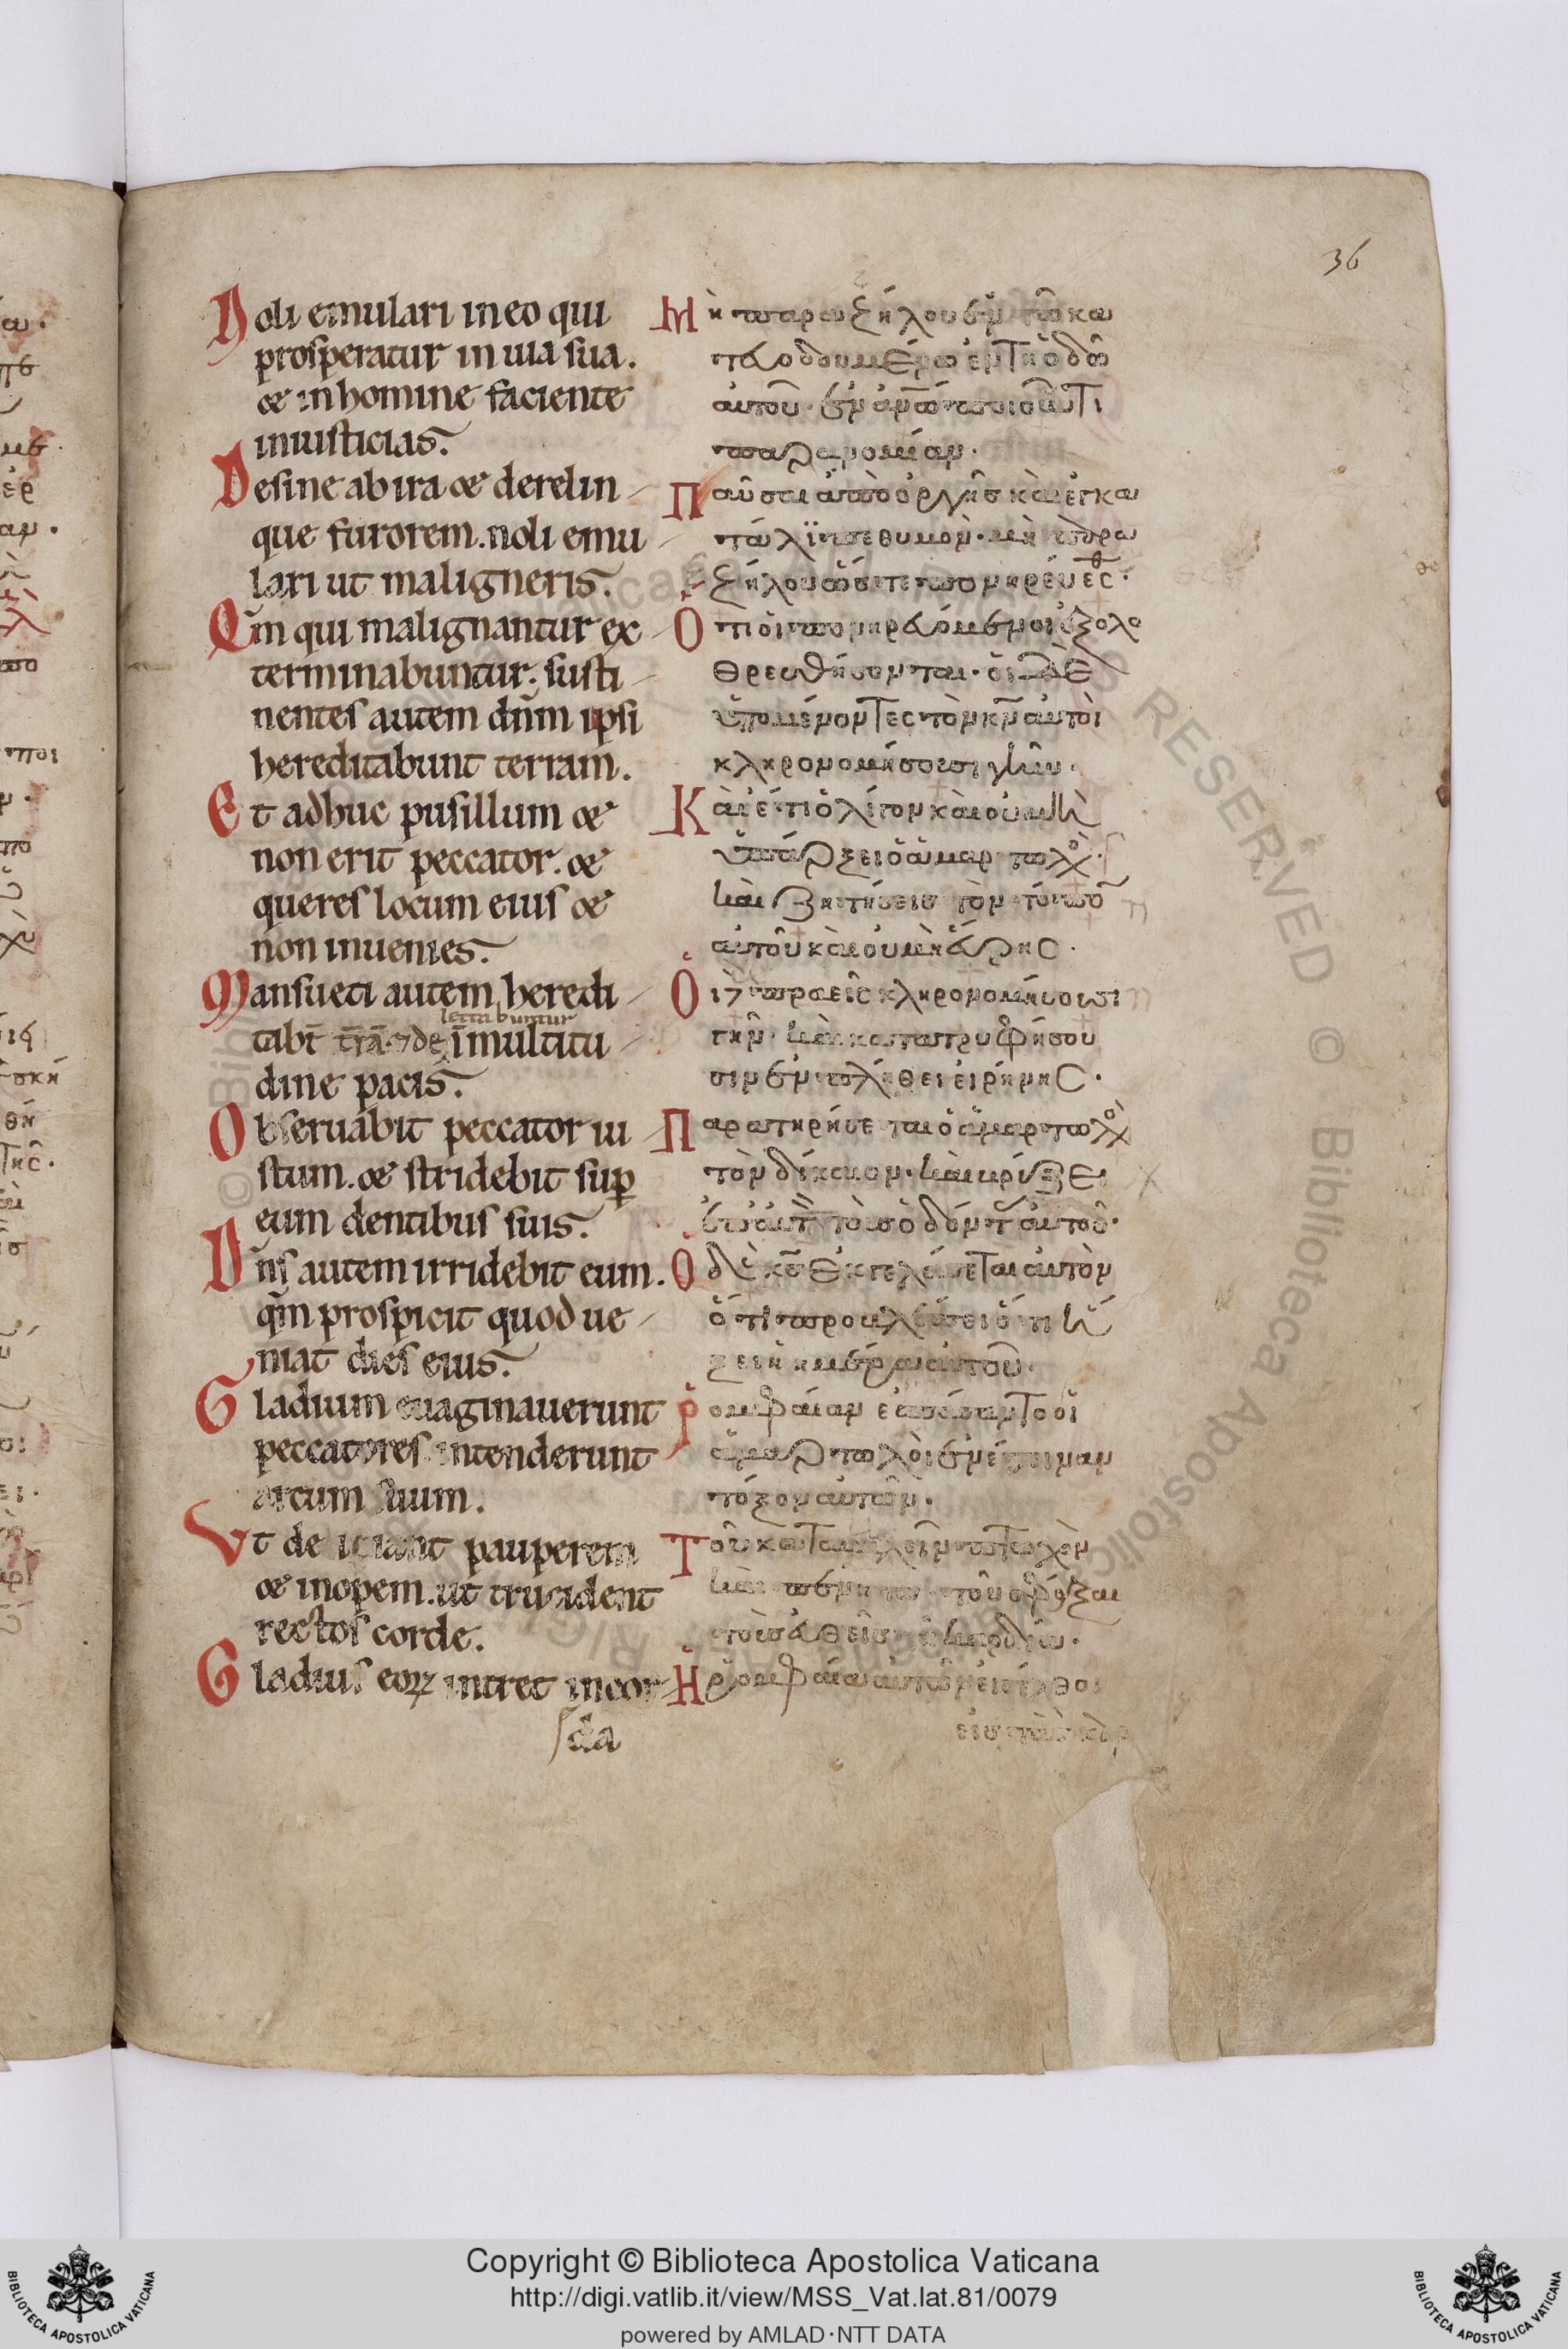 36
Noli emulari in eo qui
prosperatur in uia sua.
& in homine faciente
iniusticias.
Desine ab ira & derelin
que furorem. noli emu
lari ut maligneris.
Qm̄ qui malignantur ex
terminabuntur. susti
nentes autem dn̄m ipsi
hereditabunt terram.
Et adhuc pusillum &
non erit peccator. &
queres locum eius &
non inuenies.
Mansueti autem heredi
lectabuntur
tabt̄ t̄rā. ⁊ de in̄ multitu
dine pacis.
Obseruabit peccator iu
stum. & stridebit sup̄
eum dentibus suis.
Dn̄s autem irridebit eum.
qm̄ prospicit quod ue
niat dies eius.
Gladium euaginauerunt
peccatores intenderunt
arcum suum.
Vt deiciant pauperem
& inopem. ut trucident
rectos corde.
Gladius eoꝝ intret in cor
da
Μὴ παραζήλου ἐν τῶ κα
τευοδουμένω ἐν τῆ ὁδῶ
αὐτοῦ· ἐν ἀν̅ω ποιοῦντι
παρανομίαν·
Παῦσαι ἀπὸ ὀργῆσ καὶ ἐγκα
τάλϊπε θυμόν· μὴ παρα
ζήλου ὥστε πονηρεύεσ·
Ὅτι οἱ πονηρευόμενοι ἐξολο
θρευθήσονται· οἱ δὲ
ὑπομένοντες τὸν κ̅ν̅ αὐτοὶ
κληρονομήσουσι γῆν·
Καὶ ἔτι ὀλίγον καὶ οὐ μὴ
ὑπάρξει ὁ ἁμαρτωλὸ·
καὶ ζητήσεισ τὸν τόπο
αὐτοῦ καὶ οὐ μὴ εὕρης·
Οἱ πραεῖς κληρονομήσουσι
γῆν· καὶ κατατρυφήσου
σιν ἐν πλήθει εἰρήνης·
Παρατηρήσεται ὁ ἁμαρτωλὸ
τὸν δίκαιον· καὶ βρύξε
ὁ δὲ κ̅σ̅ ἐκγελάσεται αὐτὸν
ὅτι προβλέπει ὅτι ἥ
ξει ἡ ἡμέρα αὐτοῦ·
Ῥομφαίαν ἐσπάσαντο οἱ
ἁμαρτωλοὶ ἐνέτειναν
τόξον αὐτῶν·
Τοῦ καταβαλεῖν πτωχὸν
καὶ πένητα τοῦ σφάξαι
τοὺσ εὐθεῖσ τῆ καρδία·
Ἡ ῥομφαία αὐτῶν εἰσέλθοι
Copyright © Biblioteca Apostolica Vaticana
http://digi.vatlib.it/view/MSS_Vat.lat.81/0079
powered by AMLAD·NTT DATA
BIBLIOTECA APOSTOLICA VATICANA
BIBLIOTECA APOSTOLICA VATICANA